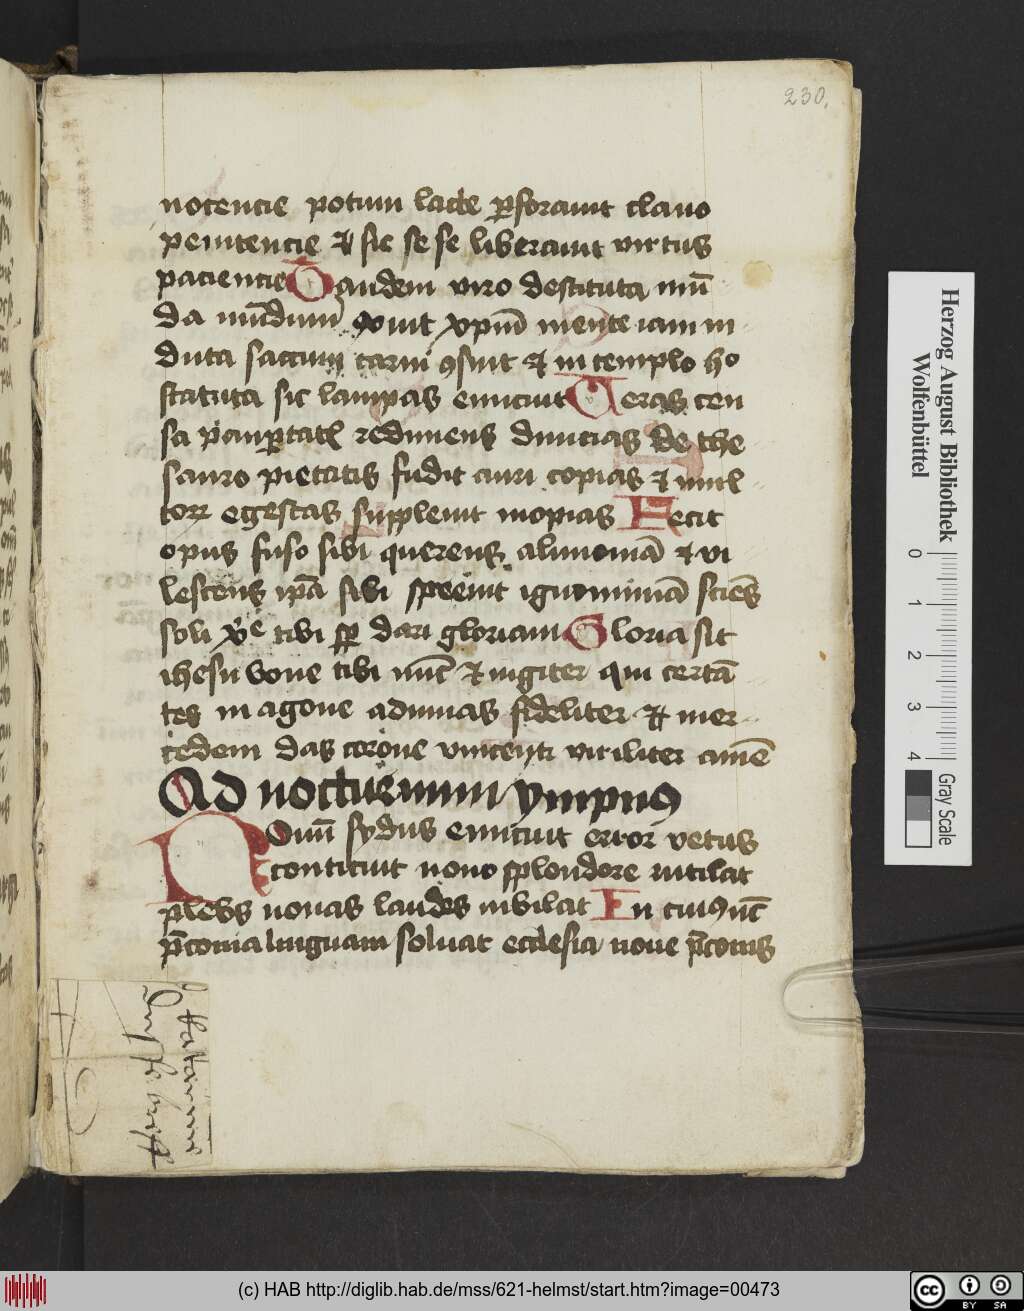 230.
nocencie potum lacte p̄forauit clauo
penitencie et sic se se liberauit virtus
paciencie Tandem viro destituta mū
da mūdum exuit xp̄m mente iam in
duta saccum carni ꝯsuit et in templo ho
statuta sic lampas enituit Veras cen
sa paup̄tatꝭ redimens diuicias de the
sauro pietatis fudit auri copias et mul
torꝝ egestas suppleuit inopias Fecit
opus fuso sibi querens alimoniā et vi
lescens ip̄a sibi spreuit ignominiā sciēs
soli xp̄e tibi sp̄ dari gloriam Gloria sit
ihesu bone tibi nūc et iugiter qui certā
tes in agone adiuuas fideliter et mer
cedem das corone vincenti viriliter amē
Ad nocturnum ympnus
Nouū sydus emicuit error vetus
conticuit nouo splendore rutilat
plebs nouas laudes iubilat In cuiꝰ nūc
p̄conia linguam soluat ecclesia noue p̄conis
Herzog August Bibliothek
Wolfenbüttel
0 1 2 3 4
Gray Scale
(c) HAB http://diglib.hab.de/mss/621-helmst/start.htm?image=00473
cc BY SA